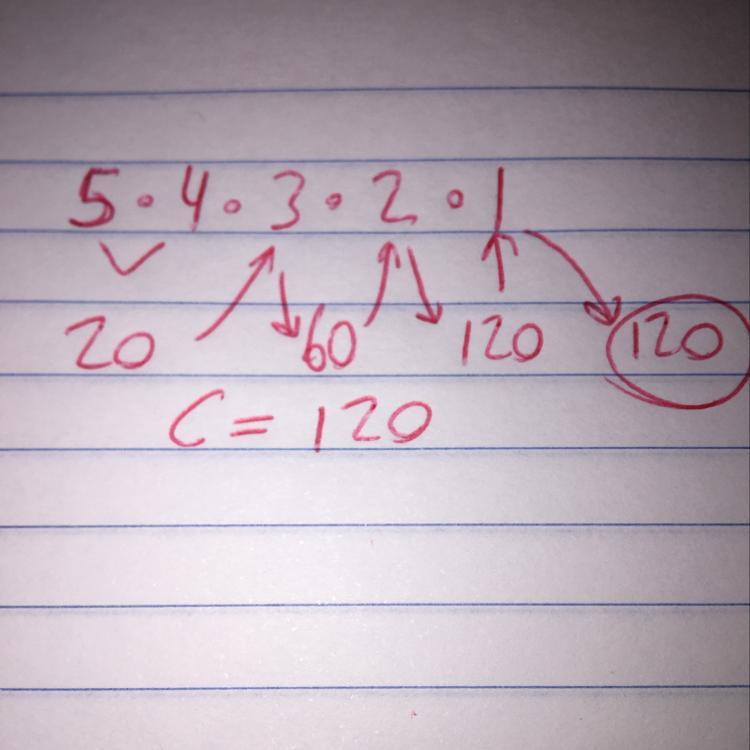 5 · 4 · 3 · 2 · 1
20 60 120 120
C = 120